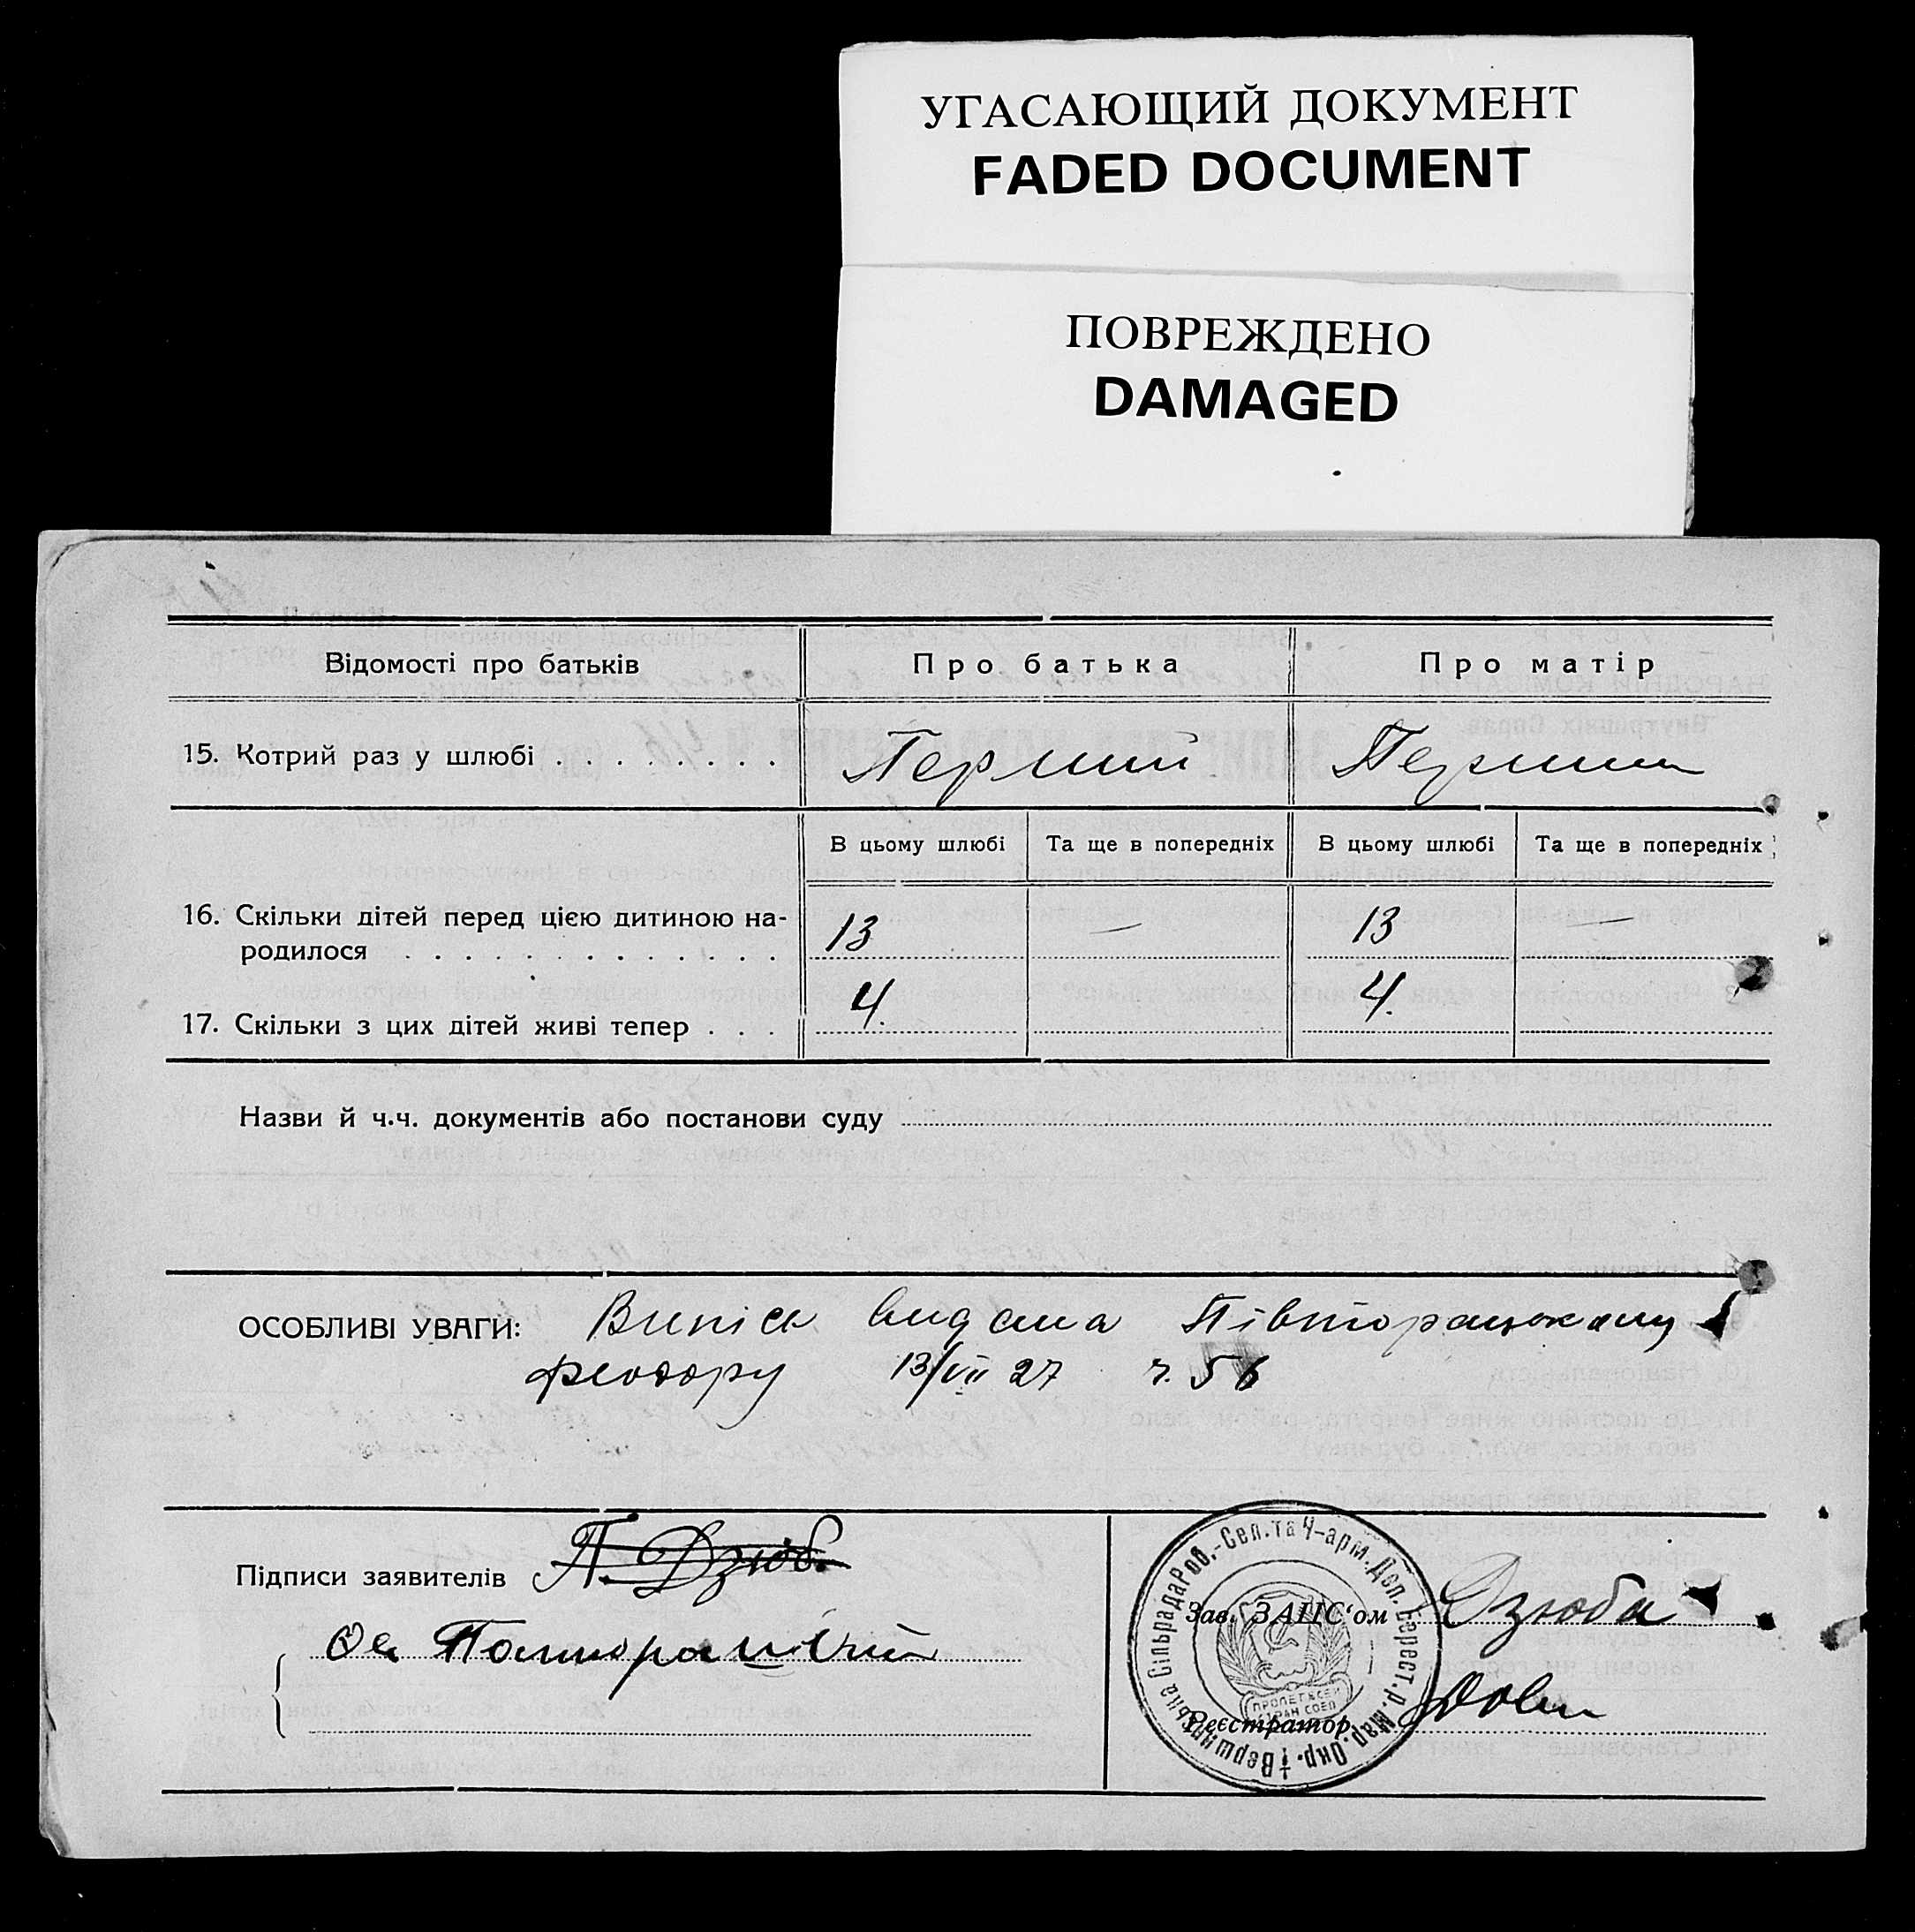 УГАСАЮЩИЙ ДОКУМЕНТ
FADED DOCUMENT
ПОВРЕЖДЕНО
DAMAGED
Відомості про батьків Про батька Про матір
15. Котрий раз у шлюбі . . . . . . . . Перший Перший
В цьому шлюбі Та ще в попередніх В цьому шлюбі Та ще в попередніх
16. Скільки дітей перед цією дитиною на-
родилося . . . . . . . . . . . . . 13 — 13 —
17. Скільки з цих дітей живі тепер . . . 4. 4.
Назви й ч.ч. документів або постанови суду
ОСОБЛИВІ УВАГИ: Випісь видана Півторацькому
Феодору 13/VII 27 ч. 56
Підписи заявителів П. Дзюб
Зав. ЗАПС'ом Дзюба
Реєстратор
Вершинська Сільрада Роб.-Сел. та Ч-арм. Деп. Берест. р. Мар. Окр.